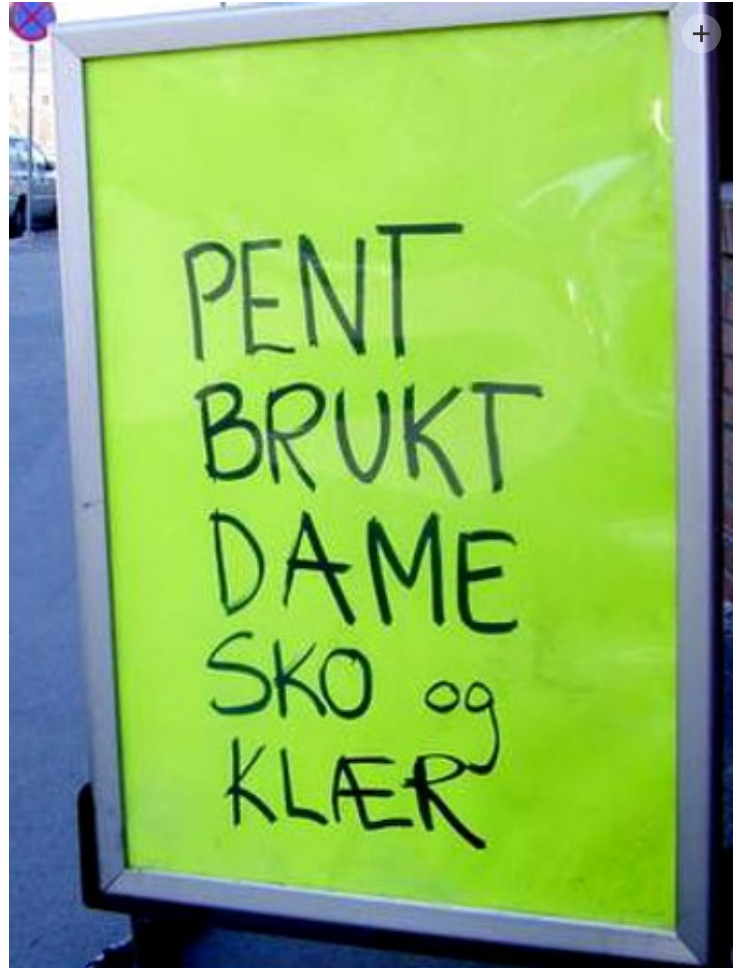 PENT
BRUKT
DAME
SKO og
KLÆR